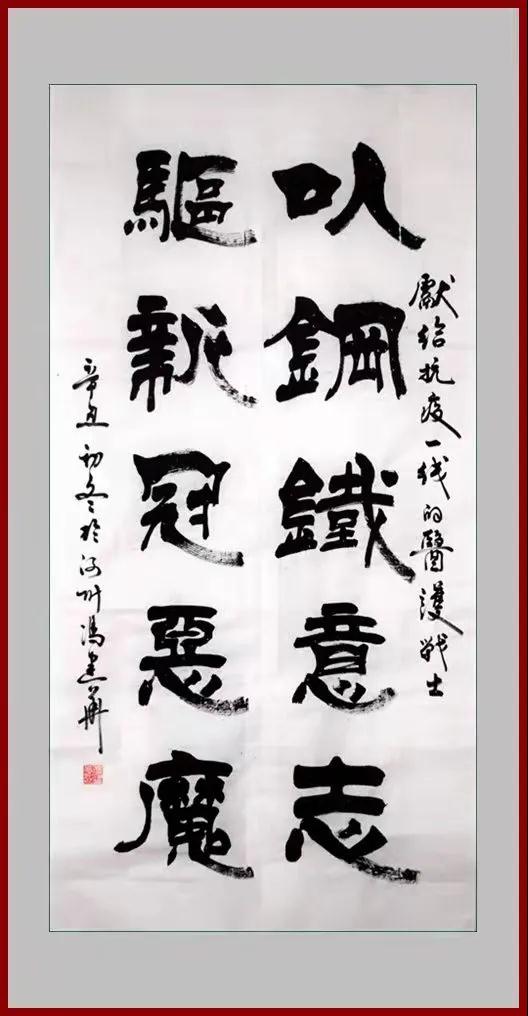 獻给抗疫一线的醫護戰士
以鋼鐵意志
驅新冠惡魔
辛丑初冬於河州馮建華